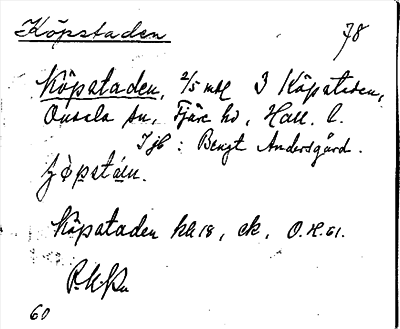 Köpstaden
78
Köpstaden, 2/5 mtl 3 Köpstaden,
Onsala sn, Fjäre hd, Hall. l.
Bengt Andersgård.
Köpstaden kh 18, ek, O.H. 61.
60